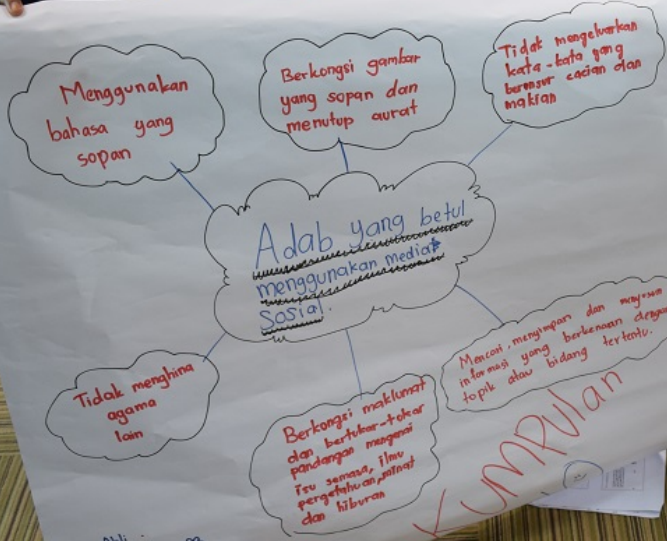 Menggunakan
bahasa yang
sopan
Berkongsi gambar
yang sopan dan
menutup aurat
Tidak mengeluarkan
kata-kata yang
berunsur cacian dan
makian
Adab yang betul
menggunakan media
Sosial.
Tidak menghina
agama
lain
Berkongsi maklumat
dan bertukar-tukar
pandangan mengenai
isu semasa, ilmu
pengetahuan, minat
dan hiburan
Mencari, menyimpan dan menyusun
informasi yang berkenaan dengan
topik atau bidang tertentu.
KUMPULAN